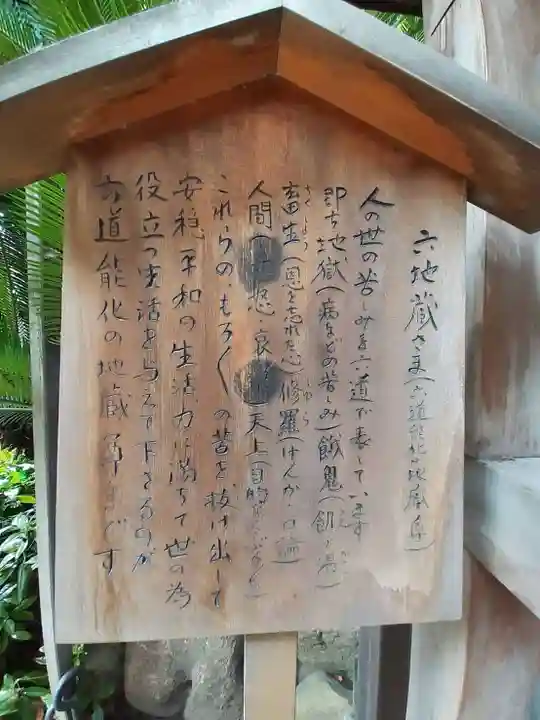 六地蔵さま(六道能化の地蔵尊)
人の世の苦しみを六道で表しています
即ち地獄(病などの苦しみ)餓鬼(飢と渇)
畜生(恩を忘れた心)修羅(けんか・口論)
人間 哀 天上(目的
これらの、もろ〱の苦を抜け出して
安穏、平和の生活力に満ちて世の為
役立つ生活を与えて下さるのが
六道能化の地蔵尊さまです